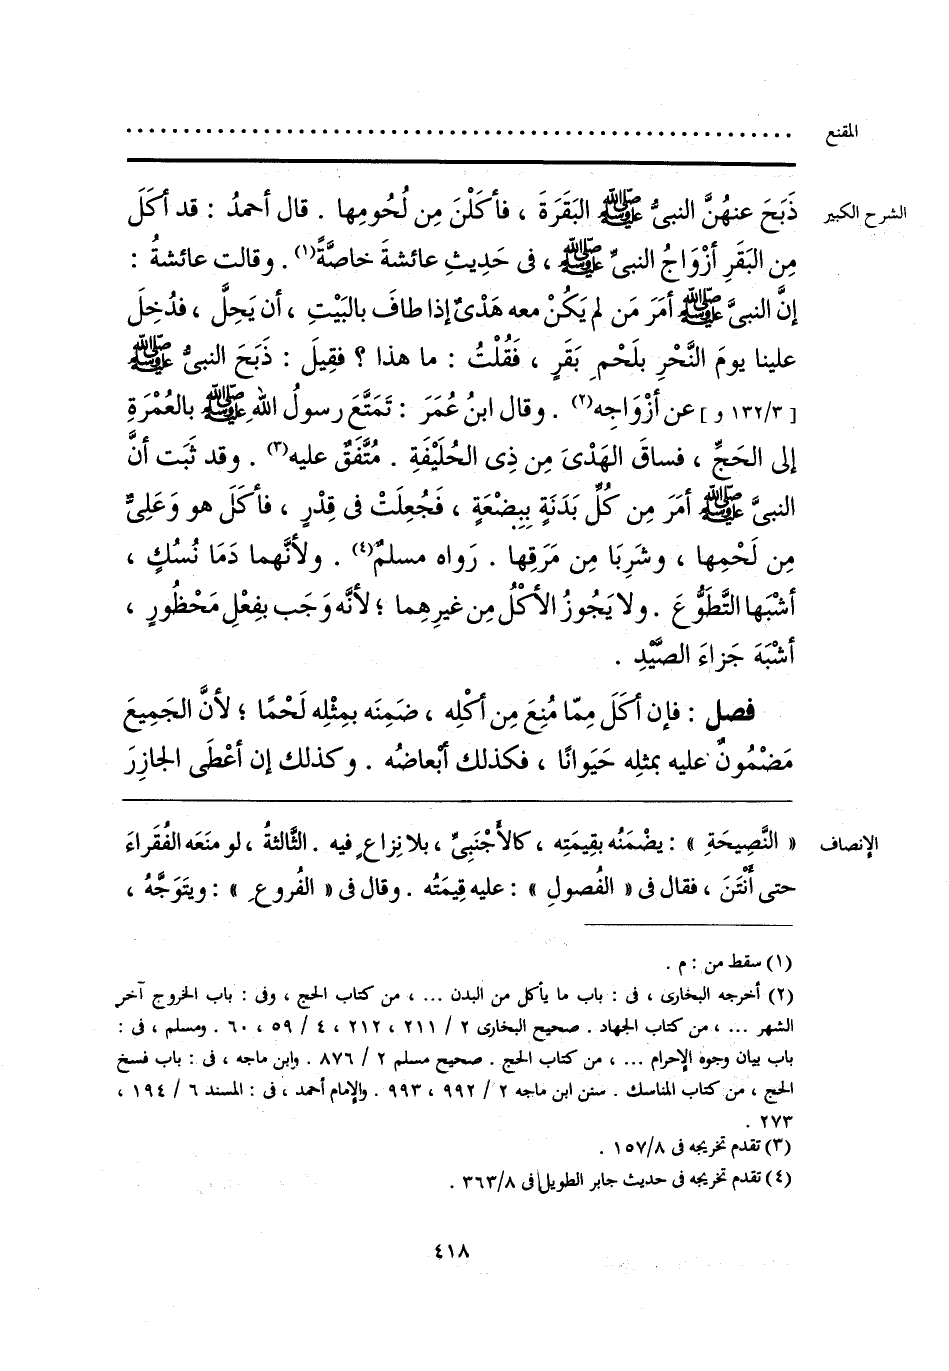 المقنع ..........................................................
الشرح الكبير ذَبَحَ عنهُنَّ النبىُّ ﷺ البَقَرَةَ ، فأكَلْنَ مِن لُحُومِها . قال أحمدُ : قد أكَلَ
مِن البَقَرِ أزْوَاجُ النبىِّ ﷺ ، فى حَدِيثِ عائشةَ خاصَّةً(١) . وقالت عائشةُ :
إنَّ النبىَّ ﷺ أمَرَ مَن لم يَكُنْ معه هَدْىٌ إذا طافَ بالبَيْتِ ، أن يَحِلَّ ، فدُخِلَ
علينا يومَ النَّحْرِ بلَحْمِ بَقَرٍ ، فَقُلْتُ : ما هذا ؟ فقِيلَ : ذَبَحَ النبىُّ ﷺ
[ ١٣٢/٣ و ] عن أزْوَاجِه(٢) . وقال ابنُ عُمَرَ : تَمَتَّعَ رسولُ اللهِ ﷺ بالعُمْرَةِ
إلى الحَجِّ ، فساقَ الهَدْىَ مِن ذِى الحُلَيْفَةِ . مُتَّفَقٌ عليه(٣) . وقد ثَبَت أنَّ
النبىَّ ﷺ أمَرَ مِن كُلِّ بَدَنَةٍ بِبِضْعَةٍ ، فَجُعِلَتْ فى قِدْرٍ ، فأكَلَ هو وَعَلِىٌّ
مِن لَحْمِها ، وشَرِبَا مِن مَرَقِها . رَواه مسلمٌ(٤) . ولأنَّهما دَمَا نُسُكٍ ،
أشْبَها التَّطَوُّعَ . ولا يَجُوزُ الأكْلُ مِن غيرِهِما ؛ لأنَّه وَجَب بفِعْلِ مَحْظُورٍ ،
أشْبَهَ جَزاءَ الصَّيْدِ .
فصل : فإن أكَلَ مِمّا مُنِعَ مِن أكْلِه ، ضَمِنَه بمِثْلِه لَحْمًا ؛ لأنَّ الجَمِيعَ
مَضْمُونٌ عليه بمثلِه حَيَوانًا ، فكذلك أبْعاضُه . وكذلك إن أعْطَى الجازِرَ
الإنصاف « النَّصِيحَةِ » : يضْمَنُه بقِيمَتِه ، كالأَجْنَبِىِّ ، بلا نِزاعٍ فيه . الثَّالثةُ ، لو منَعَه الفُقَراءَ
حتى أَنْتَنَ ، فقال فى « الفُصولِ » : عليه قِيمَتُه . وقال فى « الفُروعِ » : ويتَوَجَّهُ ،
(١) سقط من : م .
(٢) أخرجه البخارى ، فى : باب ما يأكل من البدن ... ، من كتاب الحج ، وفى : باب الخروج آخر
الشهر ... ، من كتاب الجهاد . صحيح البخارى ٢ / ٢١١ ، ٢١٢ ، ٤ / ٥٩ ، ٦٠ . ومسلم ، فى :
باب بيان وجوه الإحرام ... ، من كتاب الحج . صحيح مسلم ٢ / ٨٧٦ . وابن ماجه ، فى : باب فسخ
الحج ، من كتاب المناسك . سنن ابن ماجه ٢ / ٩٩٢ ، ٩٩٣ . والإمام أحمد ، فى : المسند ٦ / ١٩٤ ،
٢٧٣ .
(٣) تقدم تخريجه فى ١٥٧/٨ .
(٤) تقدم تخريجه فى حديث جابر الطويل فى ٣٦٣/٨ .
٤١٨